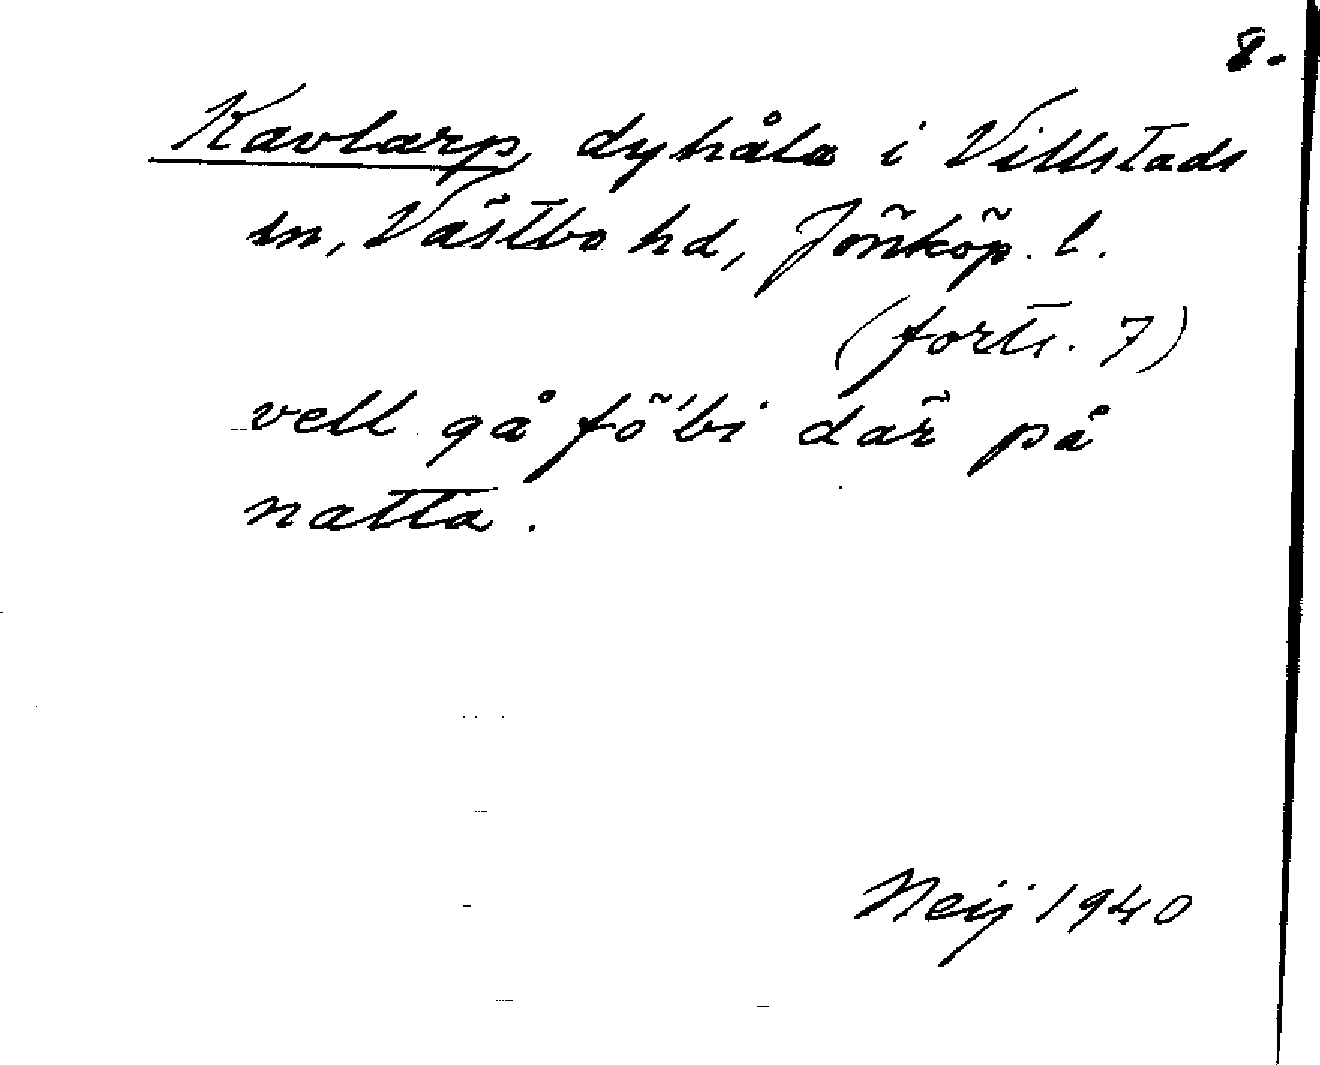 8.
Kavlarp, dyhåla i Villstads
sn, Västbo hd, Jönköp. l.
(forts. 7)
vell gå fö'bi där på
natta.
Neij 1940